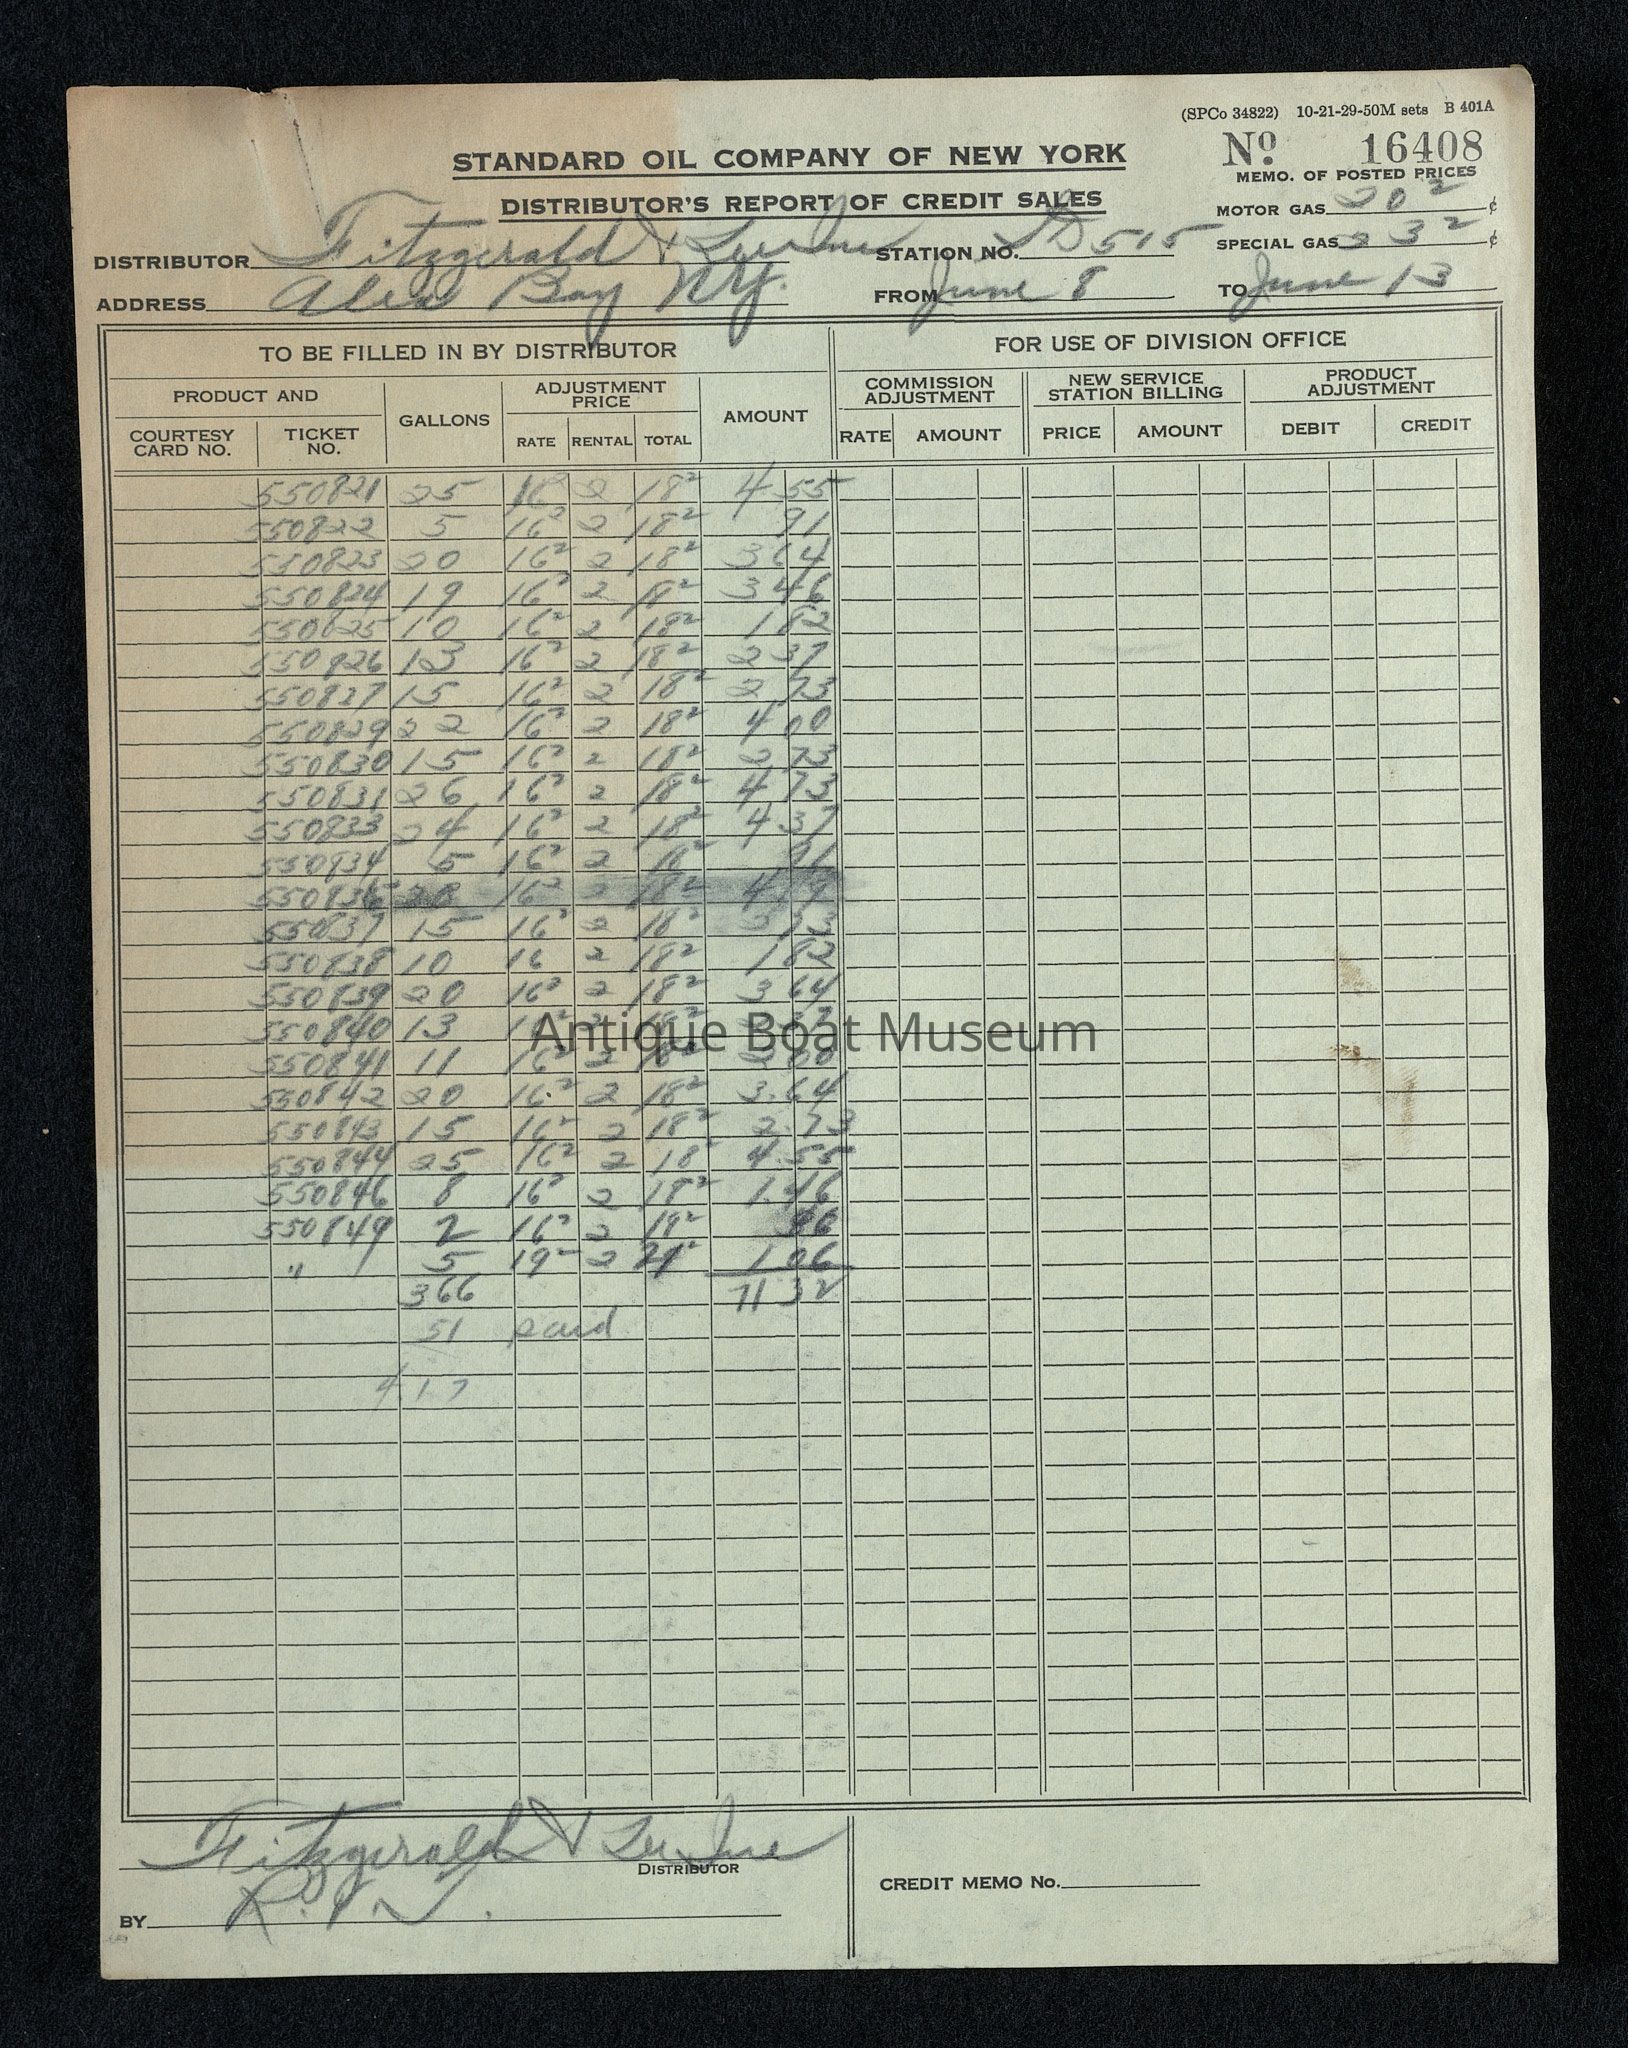 (SPCo 34822) 10-21-29-50M sets B 401A
STANDARD OIL COMPANY OF NEW YORK
No 16408
MEMO. OF POSTED PRICES
DISTRIBUTOR'S REPORT OF CREDIT SALES
MOTOR GAS 20 2 ¢
DISTRIBUTOR Fitzgerald & Lee Inc STATION NO. SD 515 SPECIAL GAS 23 2 ¢
ADDRESS Alex Bay N.Y. FROM June 8 TO June 13
TO BE FILLED IN BY DISTRIBUTOR FOR USE OF DIVISION OFFICE
PRODUCT AND GALLONS ADJUSTMENT PRICE AMOUNT COMMISSION ADJUSTMENT NEW SERVICE STATION BILLING PRODUCT ADJUSTMENT
COURTESY CARD NO. TICKET NO. RATE RENTAL TOTAL RATE AMOUNT PRICE AMOUNT DEBIT CREDIT
550821 25 16 2 2 18 2 4 55
550822 5 16 2 2 18 2 91
550823 20 16 2 2 18 2 3 64
550824 19 16 2 2 18 2 3 46
550825 10 16 2 2 18 2 1 82
550826 13 16 2 2 18 2 2 37
550827 15 16 2 2 18 2 2 73
550829 22 16 2 2 18 2 4 00
550830 15 16 2 2 18 2 2 73
550831 26 16 2 2 18 2 4 73
550833 24 16 2 2 18 2 4 37
550834 5 16 2 2 18 2 91
16 2 2 18 2
550837 15 16 2 2 18 2 2 73
550838 10 16 2 18 2 1 82
550839 20 16 2 2 18 2 3 64
550840 13 16 2 2 18 2 2 37
550841 11 16 2 2 18 2 2 00
550842 20 16 2 2 18 2 3.64
550843 15 16 2 2 18 2 2.73
550844 25 16 2 2 18 2 4.55
550846 8 16 2 2 18 2 1.46
550849 2 16 2 2 18 2 36
" 5 19 2 2 21 2 1 06
366 71 32
51
417
Antique Boat Museum
Fitzgerald & Lee Inc
DISTRIBUTOR
CREDIT MEMO No.
BY